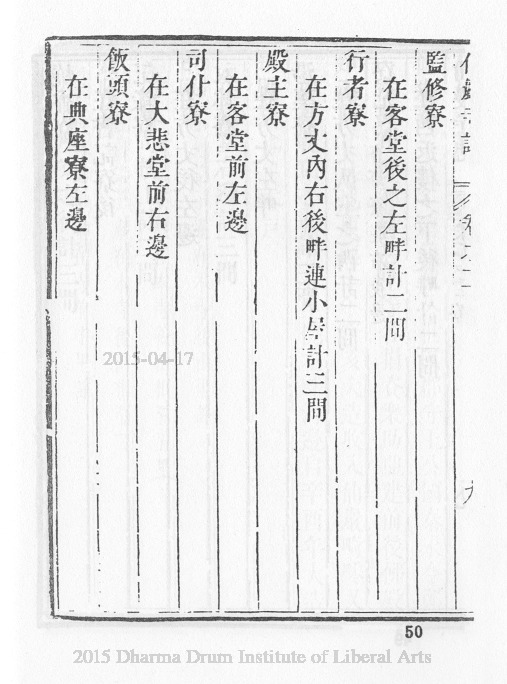 監修寮
在客堂後之左畔計二間
行者寮
在方丈內右後畔連小房計三間
殿主寮
在客堂前左邊
司什寮
在大悲堂前右邊
飯頭寮
在典座寮左邊
50
2015-04-17
2015 Dharma Drum Institute of Liberal Arts